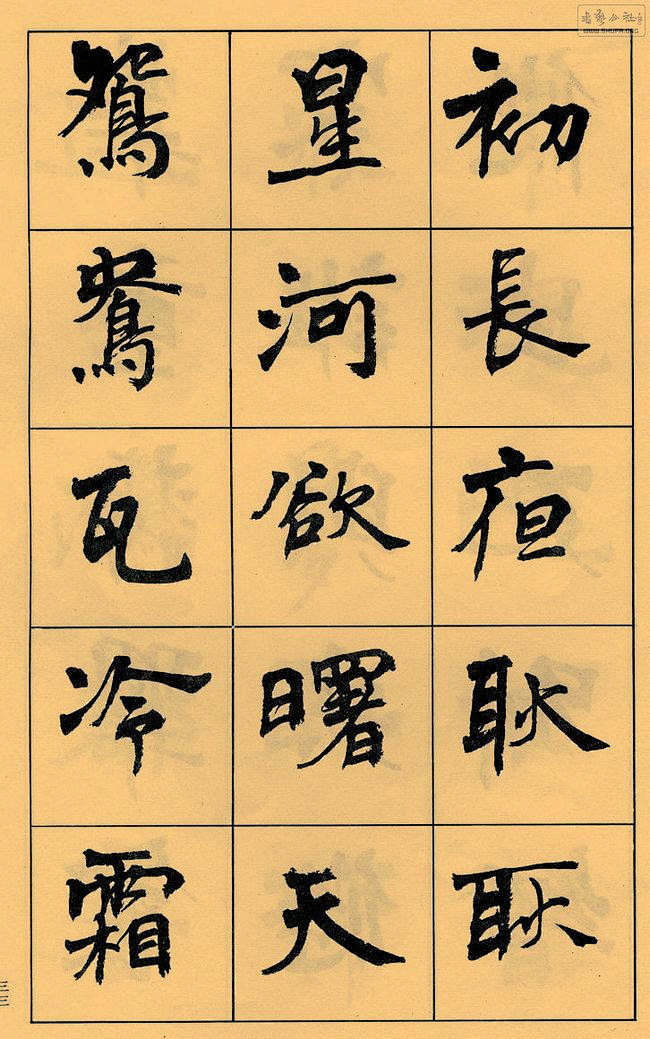 初長夜耿耿
星河欲曙天
鴛鴦瓦冷霜
三三
书艺公社
WWW.SHUFA.ORG